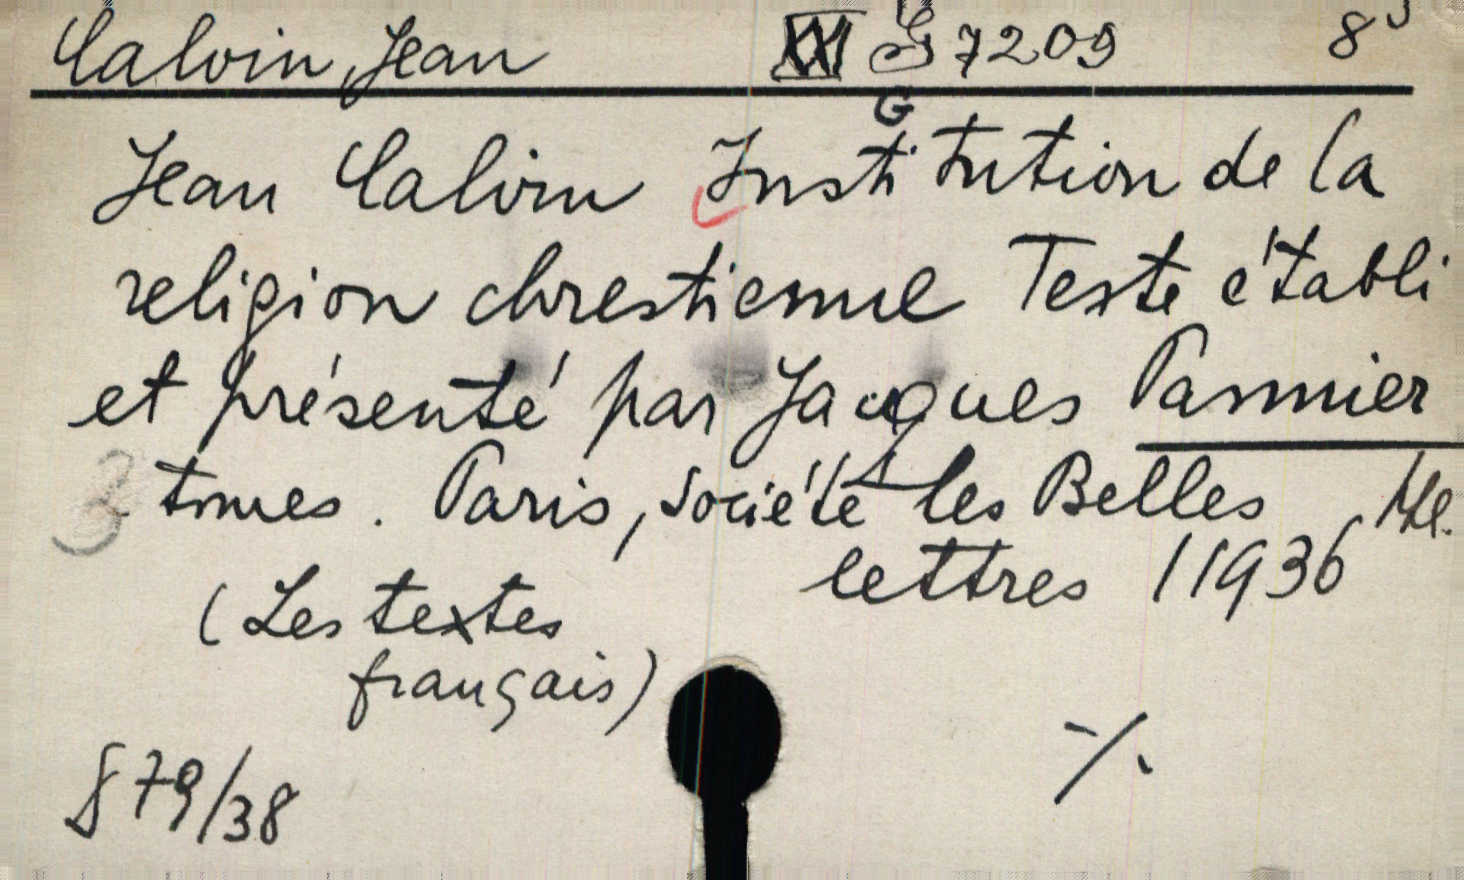 Calvin, Jean XXI G 7209 8°
G
Jean Calvin Institution de la
religion chrestienne Texte établi
et présenté par Jacques Pannier
3 tomes. Paris, Société les Belles
lettres 1936
(Les textes
français)
§ 79/38
-/.